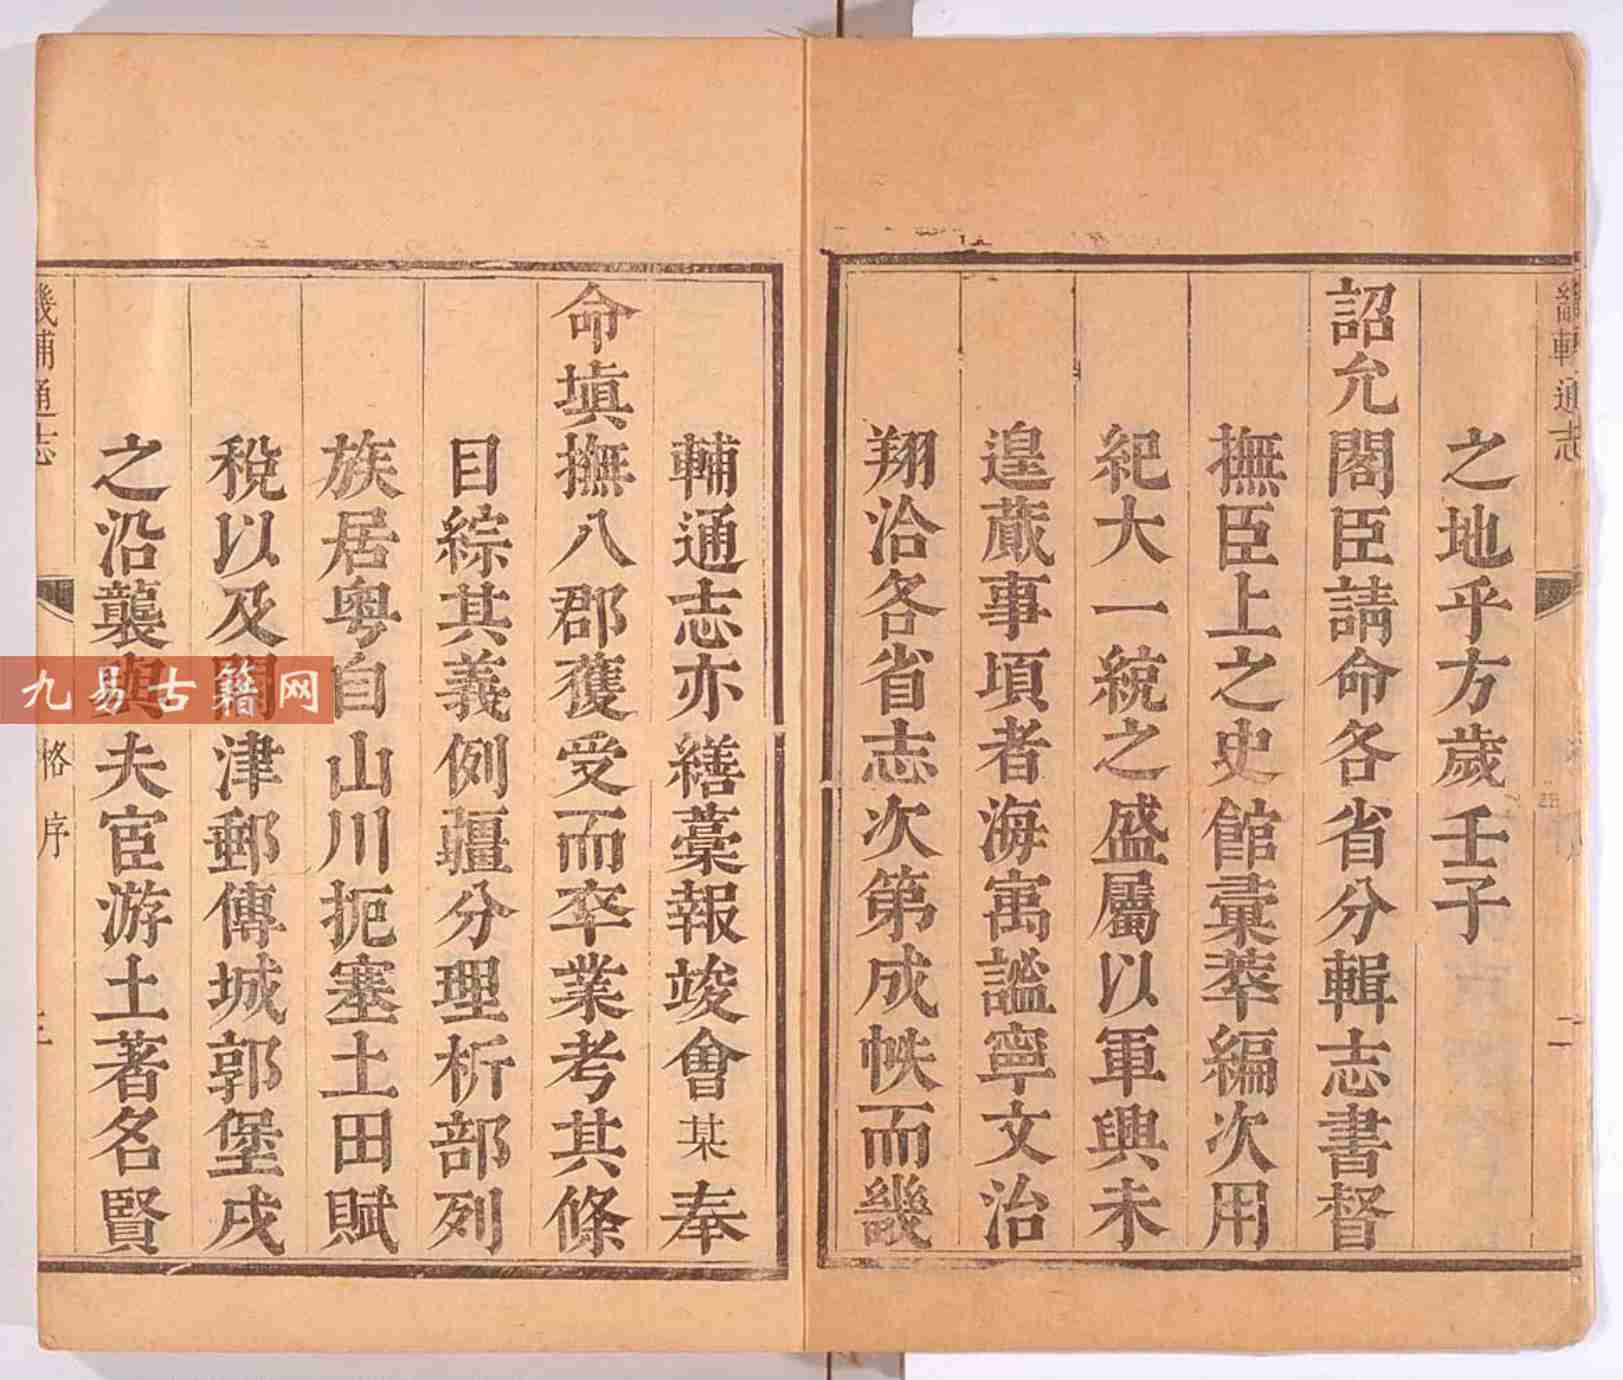 之地乎方歲壬子
詔允閣臣請命各省分輯志書督
撫臣上之史館彙萃編次用
紀大一統之盛屬以軍興未
遑蕆事頃者海寓謐寧文治
翔洽各省志次第成帙而畿
輔通志亦繕藳報竣會某奉
命塡撫八郡獲受而卒業考其條
目綜其義例疆分理析部列
族居粤自山川扼塞土田賦
稅以及關津郵傳城郭堡戍
之沿襲與夫宦游土著名賢
畿輔通志
格序
三
通志
二
九易古籍网